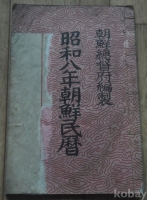 朝鮮總督府編製
昭和八年朝鮮民曆
KOBAY